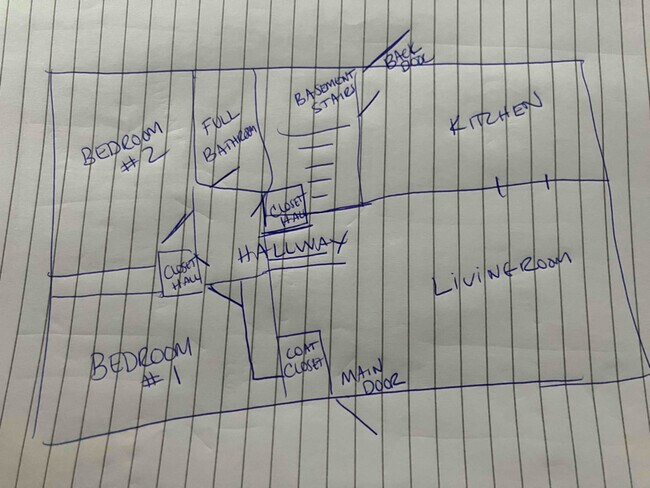 BACK
DOOR
BASEMENT
STAIRS
FULL
BATHROOM
KITCHEN
BEDROOM
#2
CLOSET
HALL
HALLWAY
CLOSET
HALL
LIVINGROOM
BEDROOM
#1
COAT
CLOSET
MAIN
DOOR